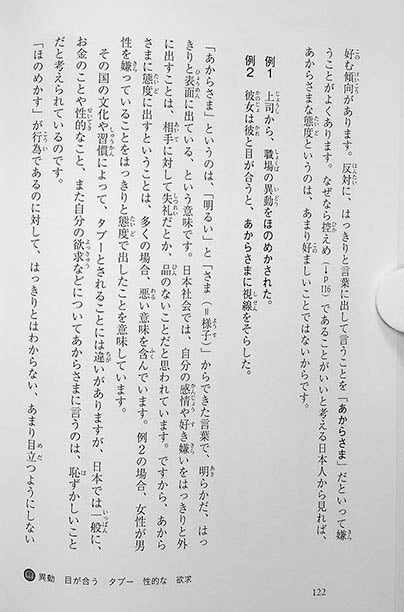 好む傾向があります。反対に、はっきりと言葉に出して言うことを「あからさま」だといって嫌
うことがよくあります。なぜなら控えめ(→p.116)であることがいいと考える日本人から見れば、
あからさまな態度というのは、あまり好ましいことではないからです。
例1 上司から、職場の異動をほのめかされた。
例2 彼女は彼と目が合うと、あからさまに視線をそらした。
「あからさま」というのは、「明るい」と「さま(=様子)」からできた言葉で、明らかだ、はっ
きりと表面に出ている、という意味です。日本社会では、自分の感情や好き嫌いをはっきりと外
に出すことは、相手に対して失礼だとか、品のないことだと思われています。ですから、あから
さまに態度に出すということは、多くの場合、悪い意味を含んでいます。例2の場合、女性が男
性を嫌っていることをはっきりと態度で出したことを意味しています。
その国の文化や習慣によって、タブーとされることには違いがありますが、日本では一般に、
お金のことや性的なこと、また自分の欲求などについてあからさまに言うのは、恥ずかしいこと
だと考えられているのです。
「ほのめかす」が行為であるのに対して、はっきりとはわからない、あまり目立つようにしない
異動 目が合う タブー 性的な 欲求
122